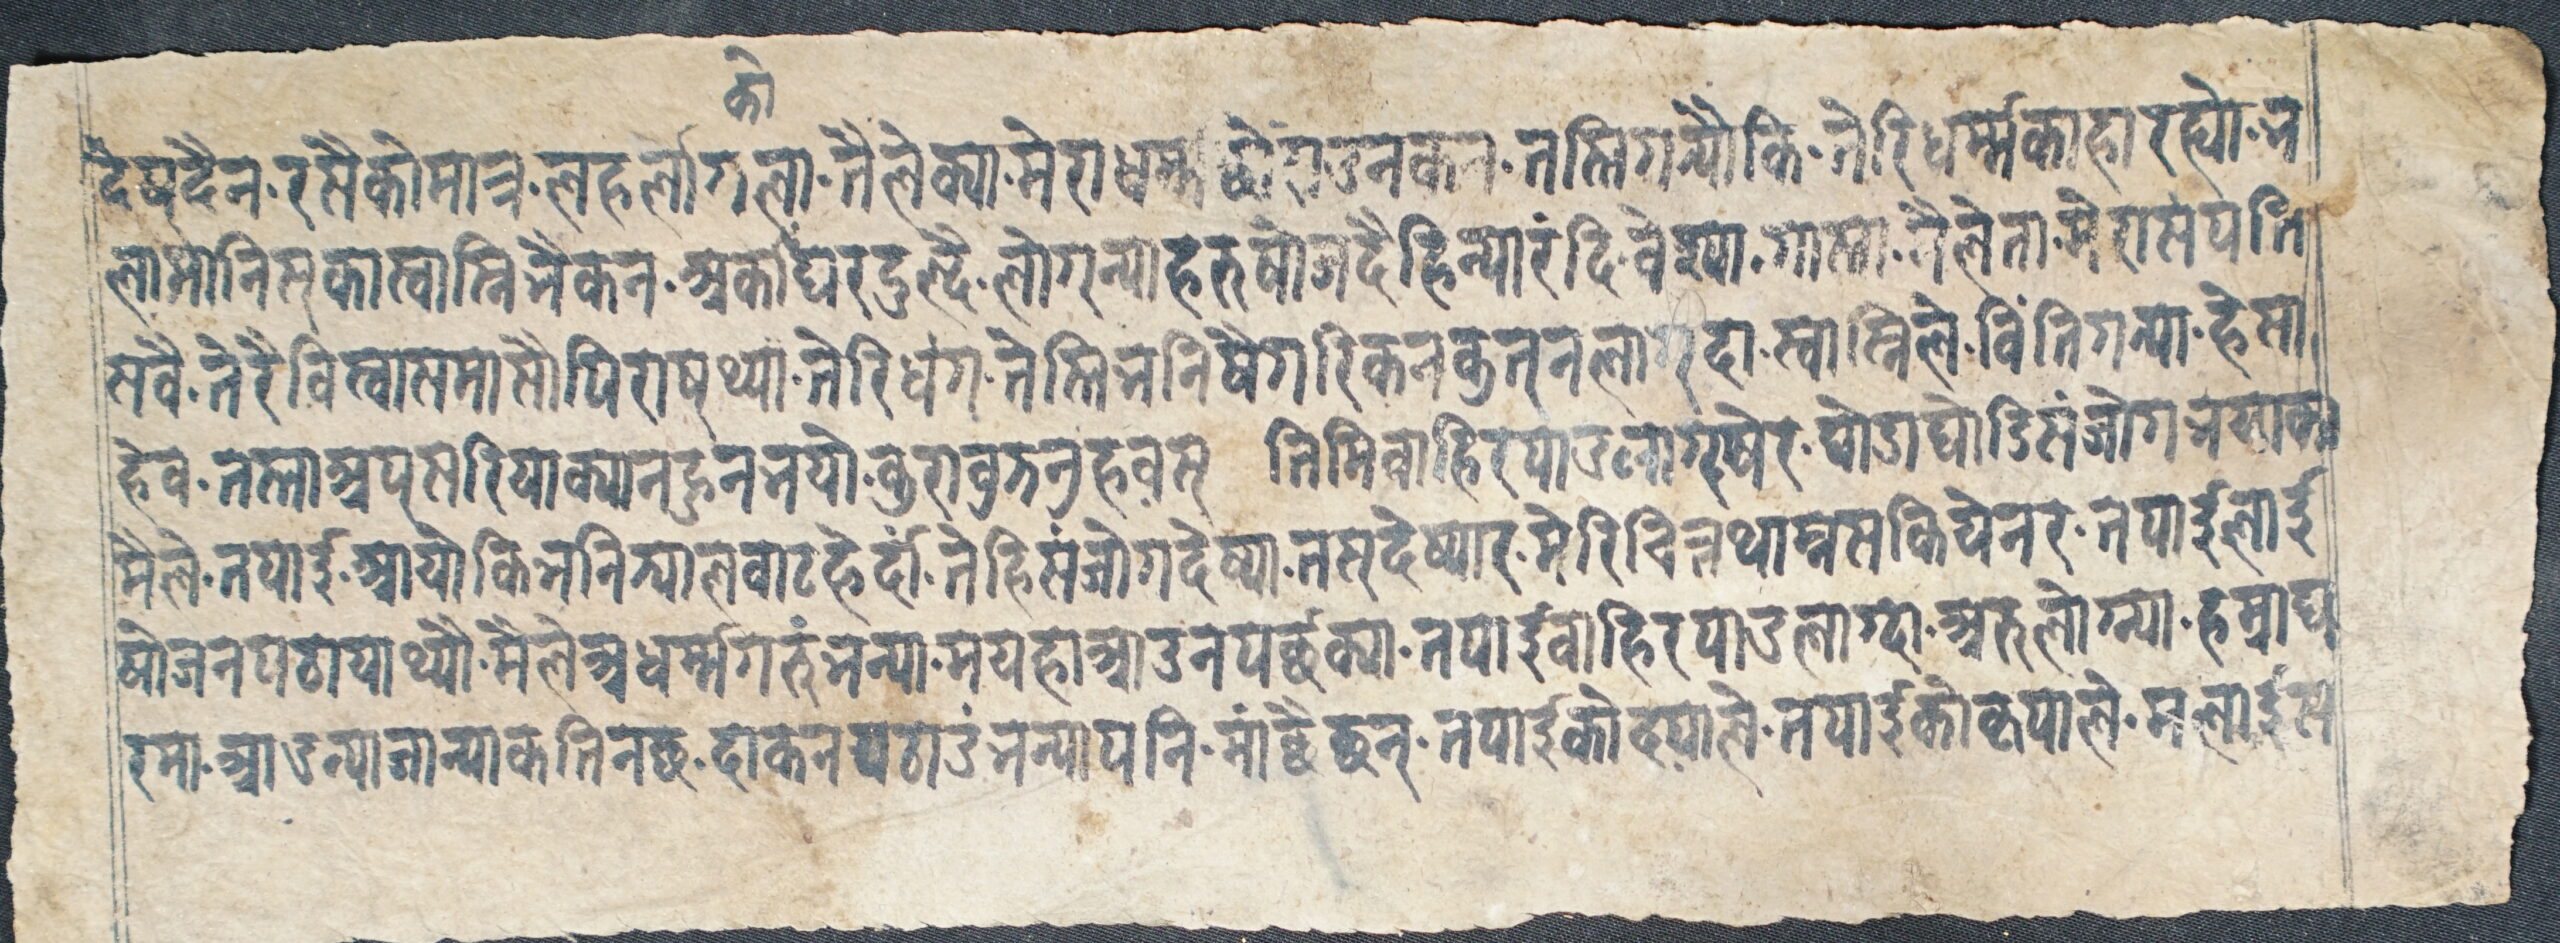 को
देषदैन · र् सैको मात्र · लहर्लागला · तैले क्या · मेरा धर्म छोराउनकन · तस्तिगर्‍यौकि · तेरि धर्म्म काहा रह्यो · भ
लाभानिस्का स्वास्निभैकन · अर्काघरडुल्दै · लोग्न्याहरु षोजदै हिन्यारंदि · वेश्या · गास्ता · तैले ता · मेरा संपत्ति
सवै · तेरै विस्वासमा सौपि राष्थ्या · तेरि धंग · तेस्ति भनि षेगरिकन कुत्न लाग्दा · स्वास्निले · विंति गर्‍या · हे सा
हेव · तस्ता अपसरिया क्यान हुनभयो · कुरा वुझ्नु हवस् तिमि वाहिर पाउ लाग्षेर · घोडा घोडि संजोग भयाका
मैले · तपाई · आयो कि भनि झ्यालवाट हेर्दा · तेहि संजोग देष्या · तस् देष्यार् · मेरि चित्त थाम्न सकि घेनर · तपाईलाई
षोजन पठायाथ्यौ · मैले अधर्म्म गरुं भन्या · म यहा आउन पर्छ क्या · तपाईं वाहिर पाउ लाग्दा · अरु लोग्न्या · हम्राघ
रमा · आउन्या जान्या कति न छ · दाकन पठाउं भन्या पनि · मांछै छन् · तपाईको दयाले · तपाईको कृपाले · मलाई स